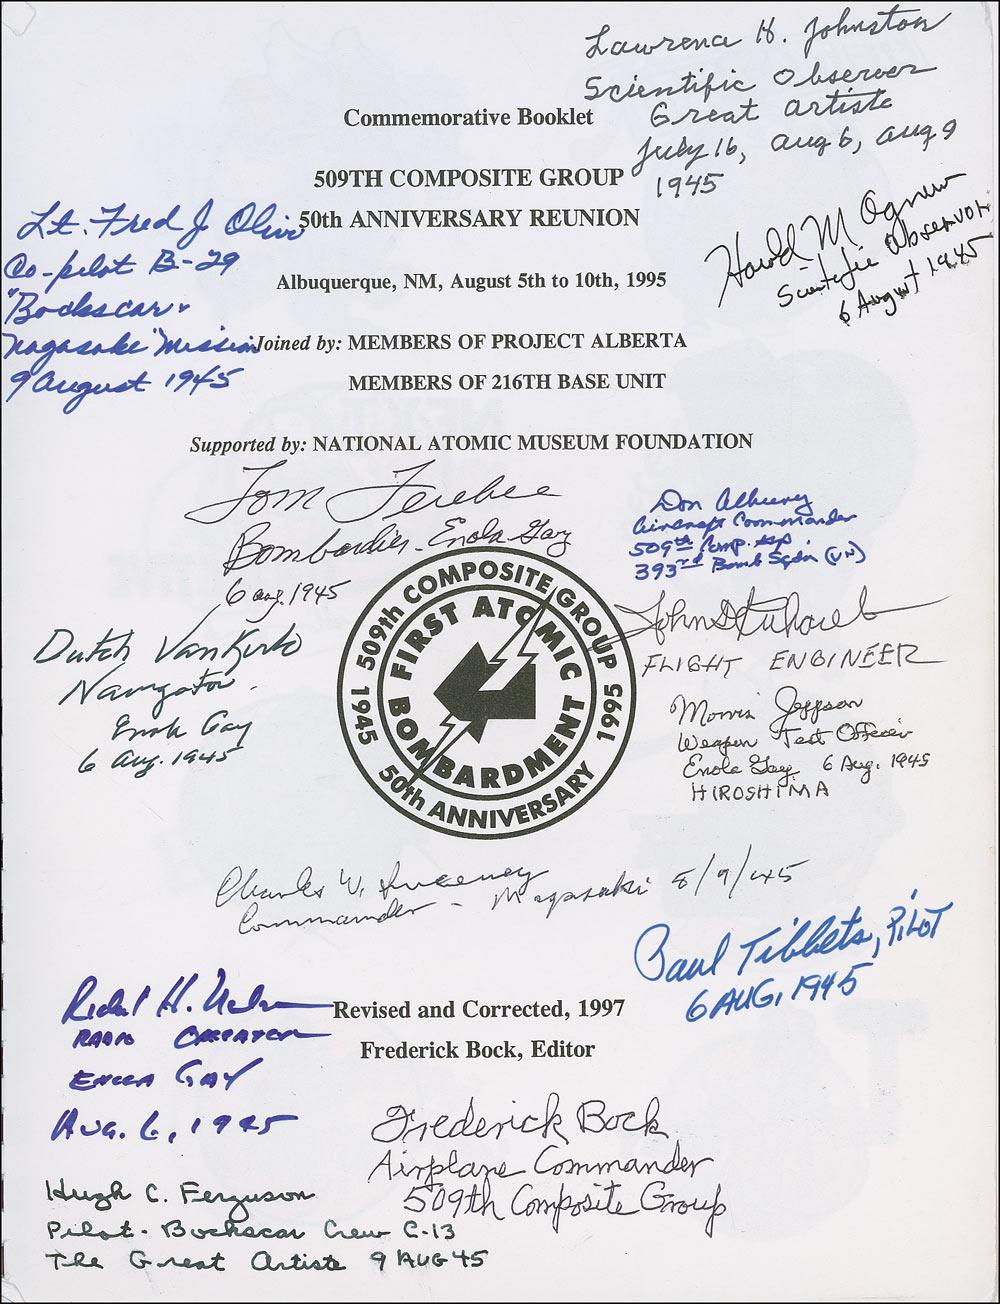 Lawrence H. Johnston
Scientific Observer
Great Artiste
July 16, Aug 6, Aug 9
1945
Commemorative Booklet
509TH COMPOSITE GROUP
50th ANNIVERSARY REUNION
Albuquerque, NM, August 5th to 10th, 1995
Harold M Agnew
Scientific Observor
6 August 1945
Lt. Fred J Olivi
Co-pilot B-29
"Bockscar"
Nagasaki Mission
9 August 1945
Joined by: MEMBERS OF PROJECT ALBERTA
MEMBERS OF 216TH BASE UNIT
Supported by: NATIONAL ATOMIC MUSEUM FOUNDATION
Tom Ferebee
Bombardier - Enola Gay
6 Aug. 1945
Don Albury
Aircraft Commander
509th Comp. Gp
393rd Bomb Sqdn (VH)
509th COMPOSITE GROUP
FIRST ATOMIC
BOMBARDMENT
1945 1995
50th ANNIVERSARY
Dutch VanKirk
Navigator
Enola Gay
6 Aug. 1945
John D Kuharek
FLIGHT ENGINEER
Morris Jeppson
Weapon Test Officer
Enola Gay 6 Aug. 1945
HIROSHIMA
Charles W. Sweeney
Commander - Nagasaki 8/9/45
Paul Tibbets, PILOT
6 AUG, 1945
Richard H. Nelson
RADIO OPERATOR
ENOLA GAY
AUG. 6, 1945
Revised and Corrected, 1997
Frederick Bock, Editor
Frederick Bock
Airplane Commander
509th Composite Group
Hugh C. Ferguson
Pilot - Bockscar Crew C-13
The Great Artiste 9 AUG 45